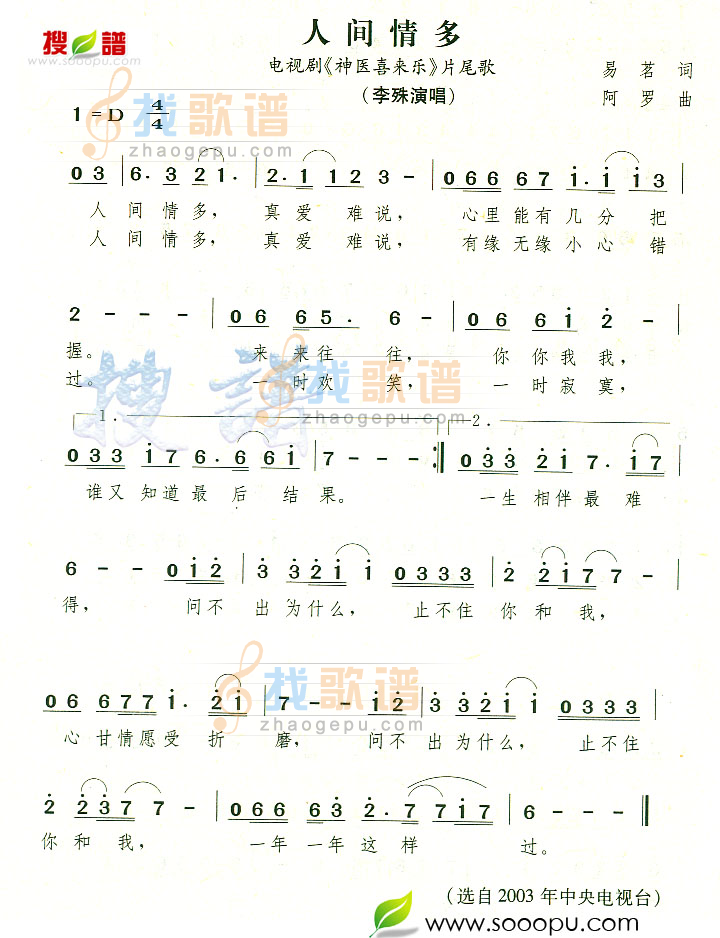 搜谱
www.sooopu.com
人间情多
电视剧《神医喜来乐》片尾歌 易茗 词
（李殊演唱） 阿罗 曲
1=D 4/4
找歌谱
zhaogepu.com
0 3 | 6. 3 2 1. | 2. 1 1 2 3 - | 0 6 6 6 7 i. i i 3 |
人间情多， 真爱难说， 心里能有几分把
人间情多， 真爱难说， 有缘无缘小心错
2 - - - | 0 6 6 5. 6 - | 0 6 6 i 2 - |
握。 来来往往， 你你我我，
过。 一时欢笑， 一时寂寞，
搜谱
找歌谱
zhaogepu.com
1. 2.
0 3 3 i 7 6. 6 6 i | 7 - - - :| 0 3 3 2 i 7. i 7 |
谁又知道最后结果。 一生相伴最难
6 - - 0 i 2 | 3 3 2 i i 0 3 3 3 | 2 2 i 7 7 - |
得， 问不出为什么， 止不住你和我，
找歌谱
zhaogepu.com
0 6 6 7 7 i. 2 i | 7 - - i 2 | 3 3 2 i i 0 3 3 3 |
心甘情愿受折磨， 问不出为什么， 止不住
2 2 3 7 7 - | 0 6 6 6 3 2. 7 7 i 7 | 6 - - - ‖
找歌谱
zhaogepu.com
你和我， 一年一年这样过。
（选自2003年中央电视台）
www.sooopu.com